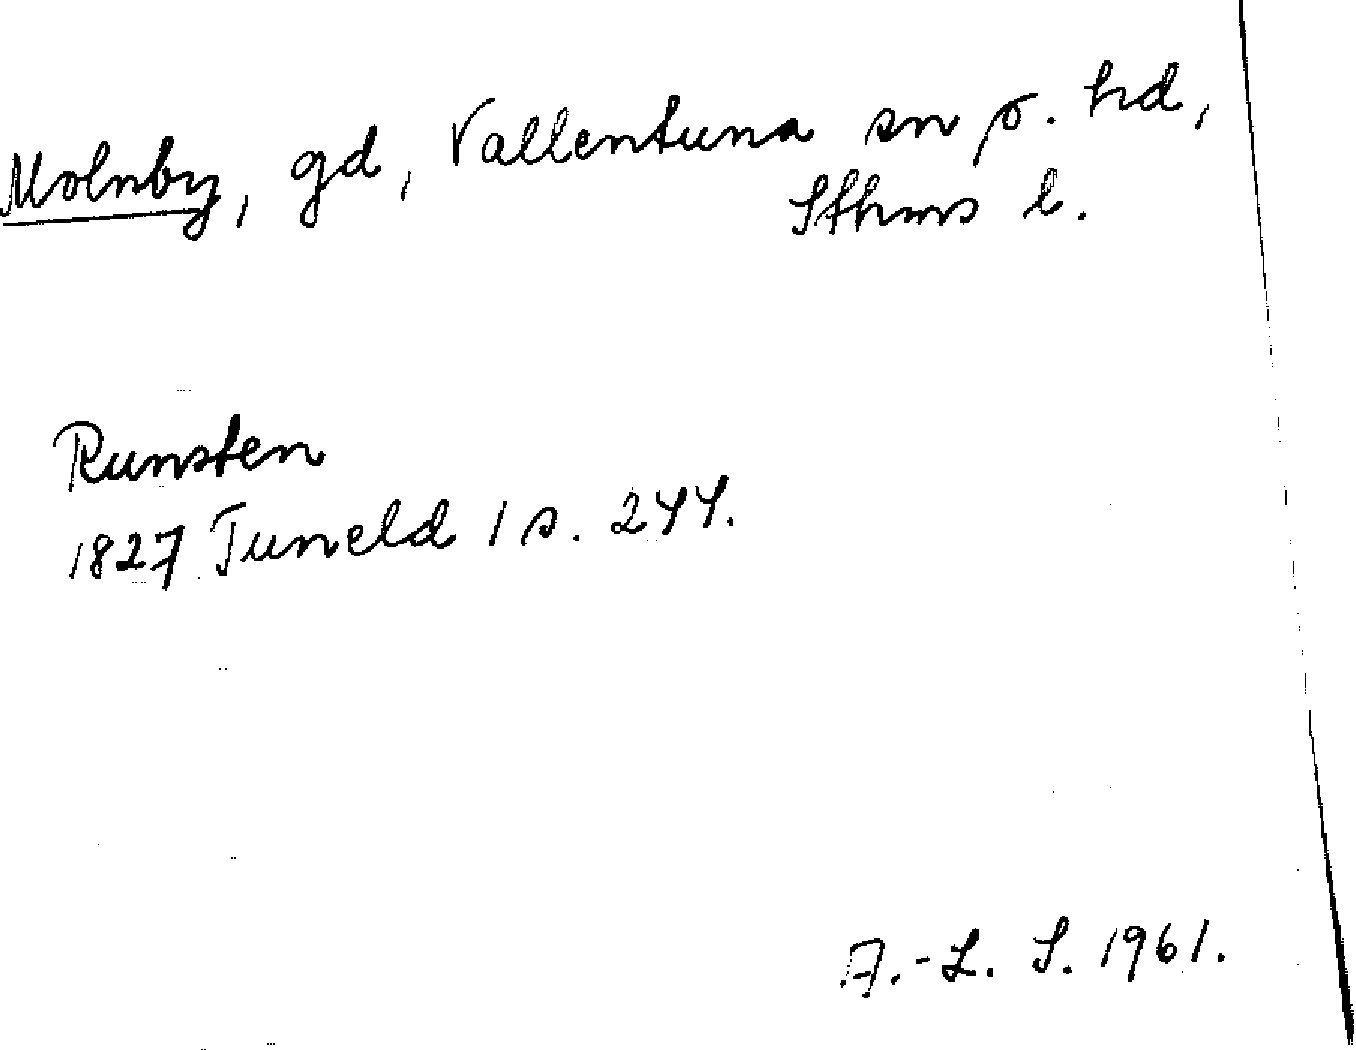 Molnby, gd, Vallentuna sn o. hd,
Sthms l.
Runsten
1827 Tuneld 1 s. 244.
A.-L. S. 1961.